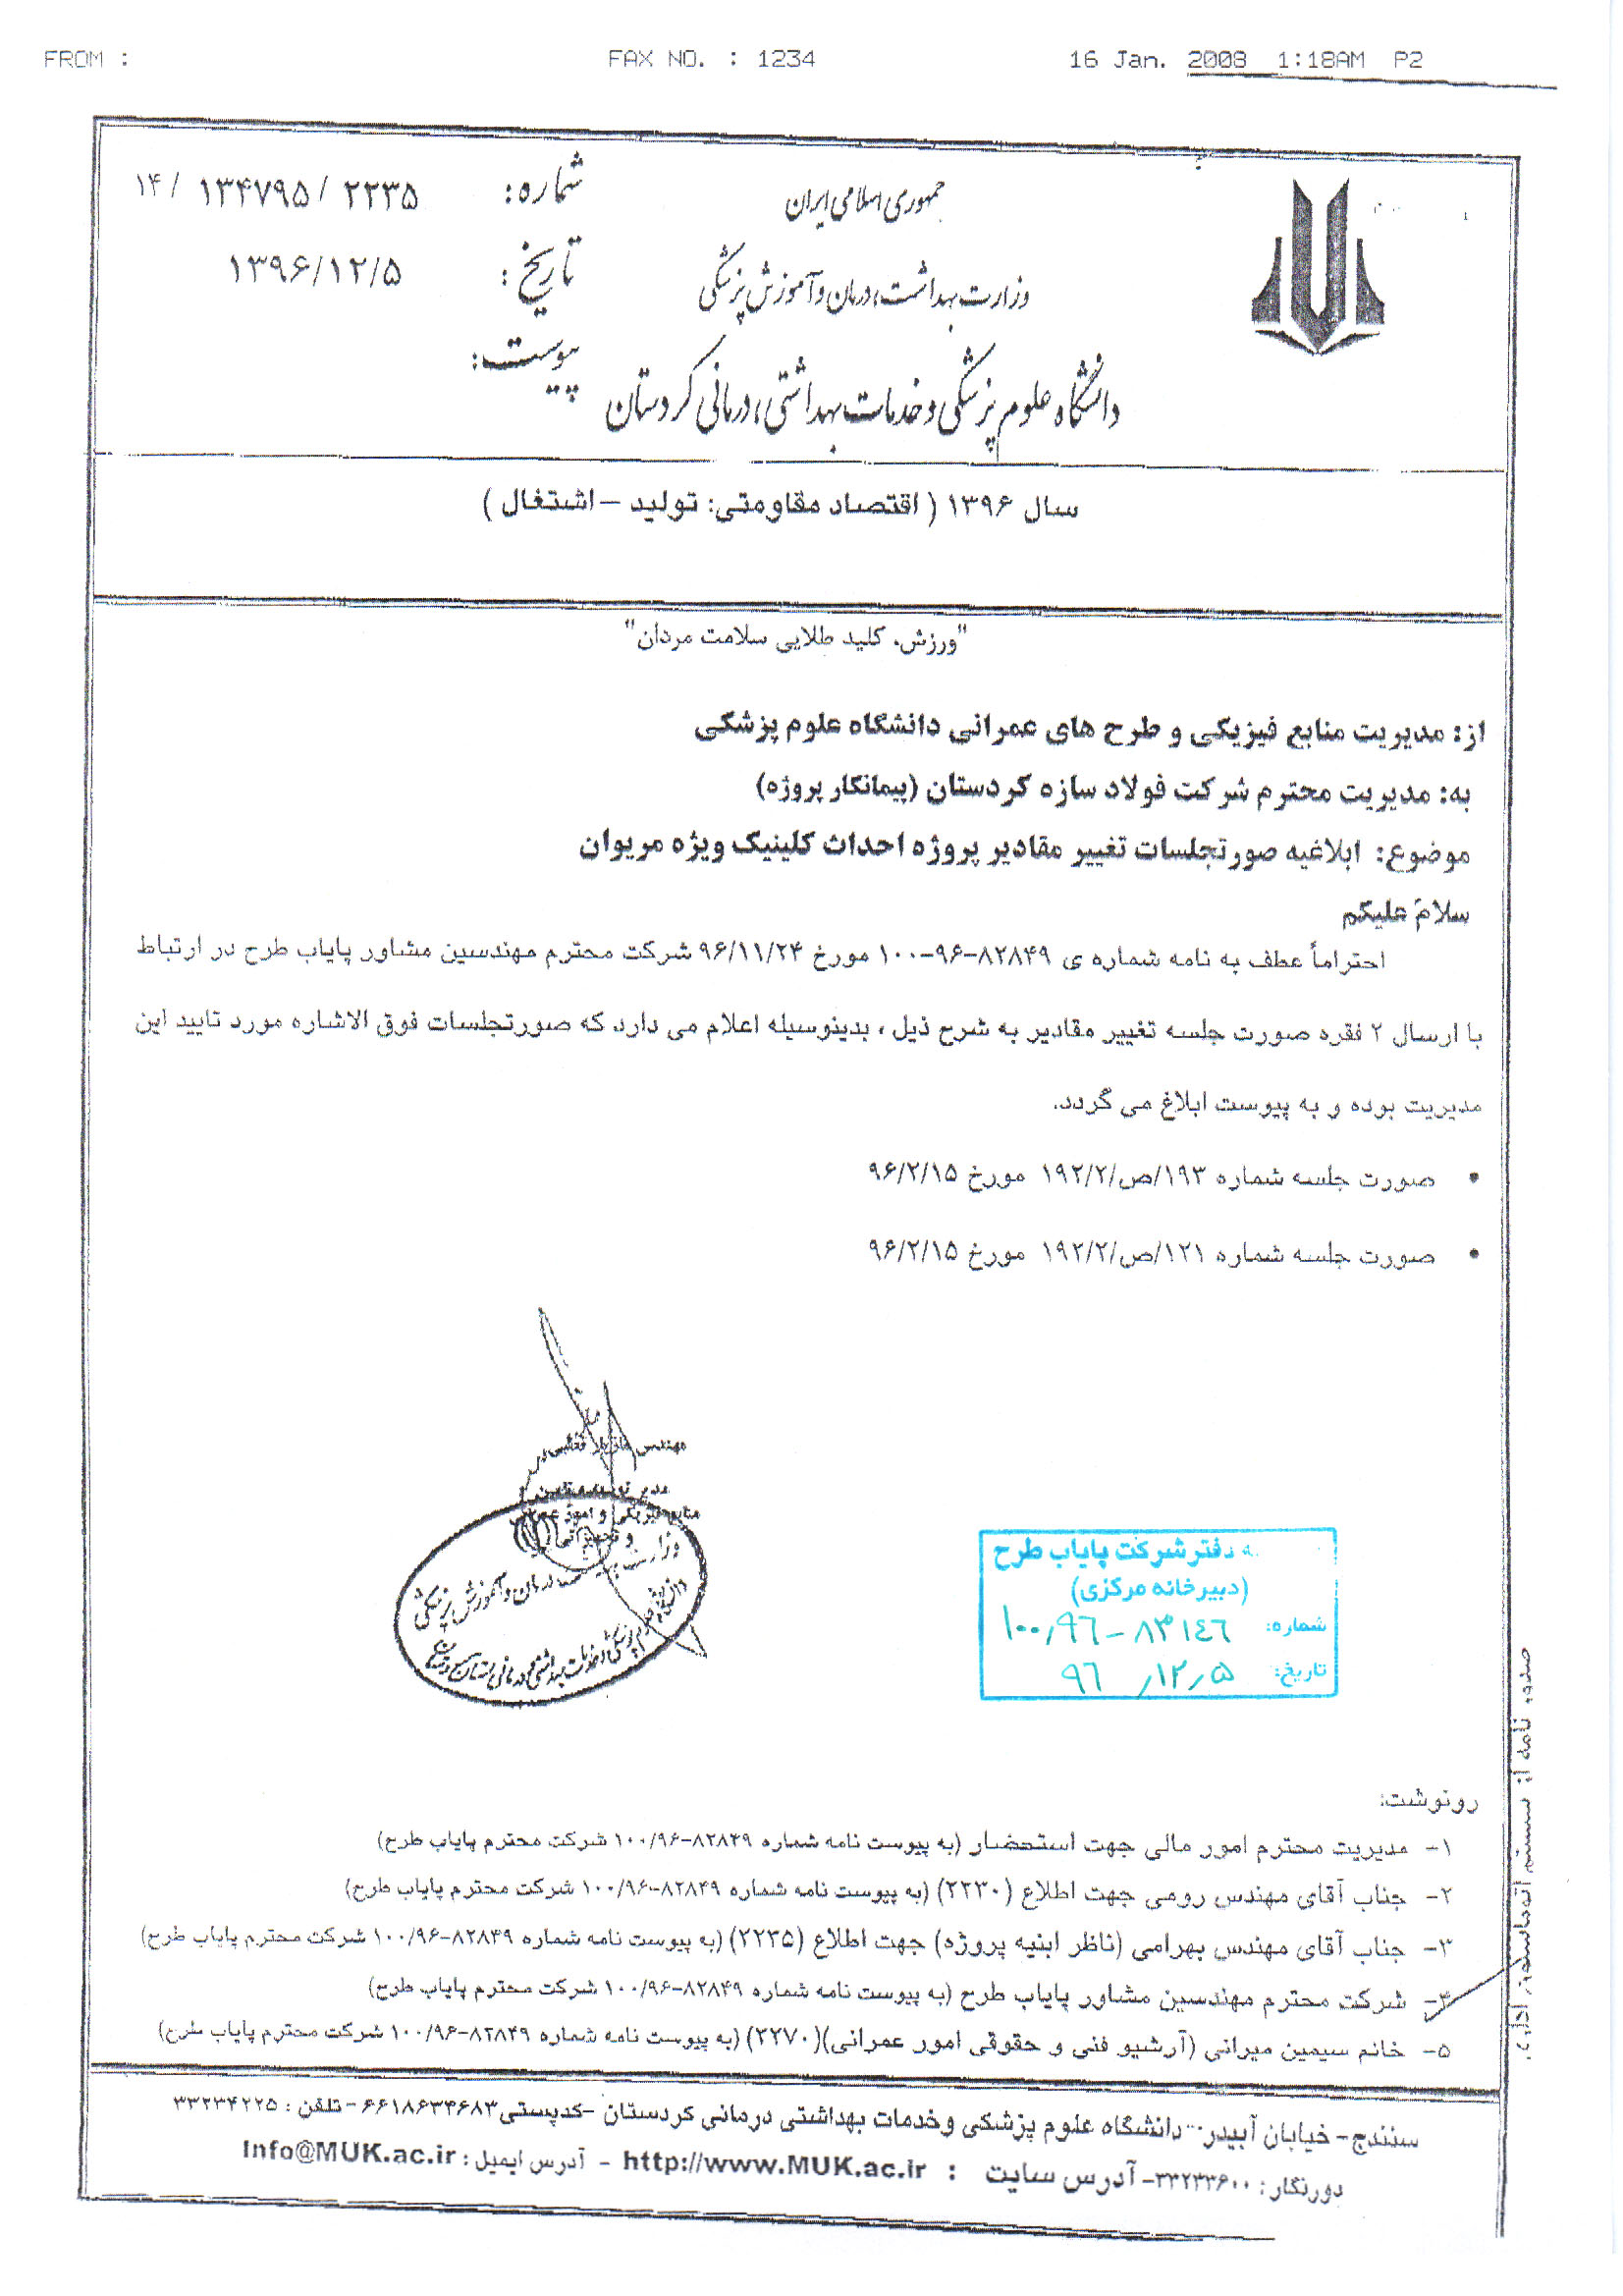 FROM :
FAX NO. : 1234
16 Jan. 2008 1:18AM P2
جمهوری اسلامی ایران
وزارت بهداشت، درمان و آموزش پزشکی
دانشگاه علوم پزشکی و خدمات بهداشتی، درمانی کردستان
شماره: ۱۴/ ۱۳۴۷۹۵/ ۲۲۳۵
تاریخ: ۱۳۹۶/۱۲/۵
پیوست:
سال ۱۳۹۶ ( اقتصاد مقاومتی: تولید – اشتغال )
"ورزش، کلید طلایی سلامت مردان"
از: مدیریت منابع فیزیکی و طرح های عمرانی دانشگاه علوم پزشکی
به: مدیریت محترم شرکت فولاد سازه کردستان (پیمانکار پروژه)
موضوع: ابلاغیه صورتجلسات تغییر مقادیر پروژه احداث کلینیک ویژه مریوان
سلامٌ علیکم
احتراماً عطف به نامه شماره ی ۸۲۸۴۹-۹۶-۱۰۰ مورخ ۹۶/۱۱/۲۴ شرکت محترم مهندسین مشاور پایاب طرح در ارتباط
با ارسال ۲ فقره صورت جلسه تغییر مقادیر به شرح ذیل ، بدینوسیله اعلام می دارد که صورتجلسات فوق الاشاره مورد تایید این
مدیریت بوده و به پیوست ابلاغ می گردد.
• صورت جلسه شماره ۱۹۳/ص/۱۹۲/۲ مورخ ۹۶/۲/۱۵
• صورت جلسه شماره ۱۲۱/ص/۱۹۲/۲ مورخ ۹۶/۲/۱۵
مهندس
مدیر توسعه
منابع فیزیکی و امور
وزارت بهداشت درمان و آموزش پزشکی
دفتر شرکت پایاب طرح
(دبیرخانه مرکزی)
شماره: ۱۰۰٫۹۶-۸۳۱۴۶
تاریخ: ۹۶٫۱۲٫۵
رونوشت:
۱- مدیریت محترم امور مالی جهت استحضار (به پیوست نامه شماره ۸۲۸۴۹-۱۰۰/۹۶ شرکت محترم پایاب طرح)
۲- جناب آقای مهندس رومی جهت اطلاع (۲۲۳۰) (به پیوست نامه شماره ۸۲۸۴۹-۱۰۰/۹۶ شرکت محترم پایاب طرح)
۳- جناب آقای مهندس بهرامی (ناظر ابنیه پروژه) جهت اطلاع (۲۲۳۵) (به پیوست نامه شماره ۸۲۸۴۹-۱۰۰/۹۶ شرکت محترم پایاب طرح)
۴- شرکت محترم مهندسین مشاور پایاب طرح (به پیوست نامه شماره ۸۲۸۴۹-۱۰۰/۹۶ شرکت محترم پایاب طرح)
۵- خانم سیمین میرانی (آرشیو فنی و حقوقی امور عمرانی)(۲۲۷۰) (به پیوست نامه شماره ۸۲۸۴۹-۱۰۰/۹۶ شرکت محترم پایاب طرح)
صدور نامه از سیستم اتوماسیون اداری
سنندج- خیابان آبیدر- دانشگاه علوم پزشکی وخدمات بهداشتی درمانی کردستان -کدپستی۶۶۱۸۶۳۴۶۸۳ -تلفن : ۳۳۲۳۴۲۲۵
دورنگار : ۳۳۲۳۳۶۰۰- آدرس سایت : http://www.MUK.ac.ir - آدرس ایمیل : Info@MUK.ac.ir